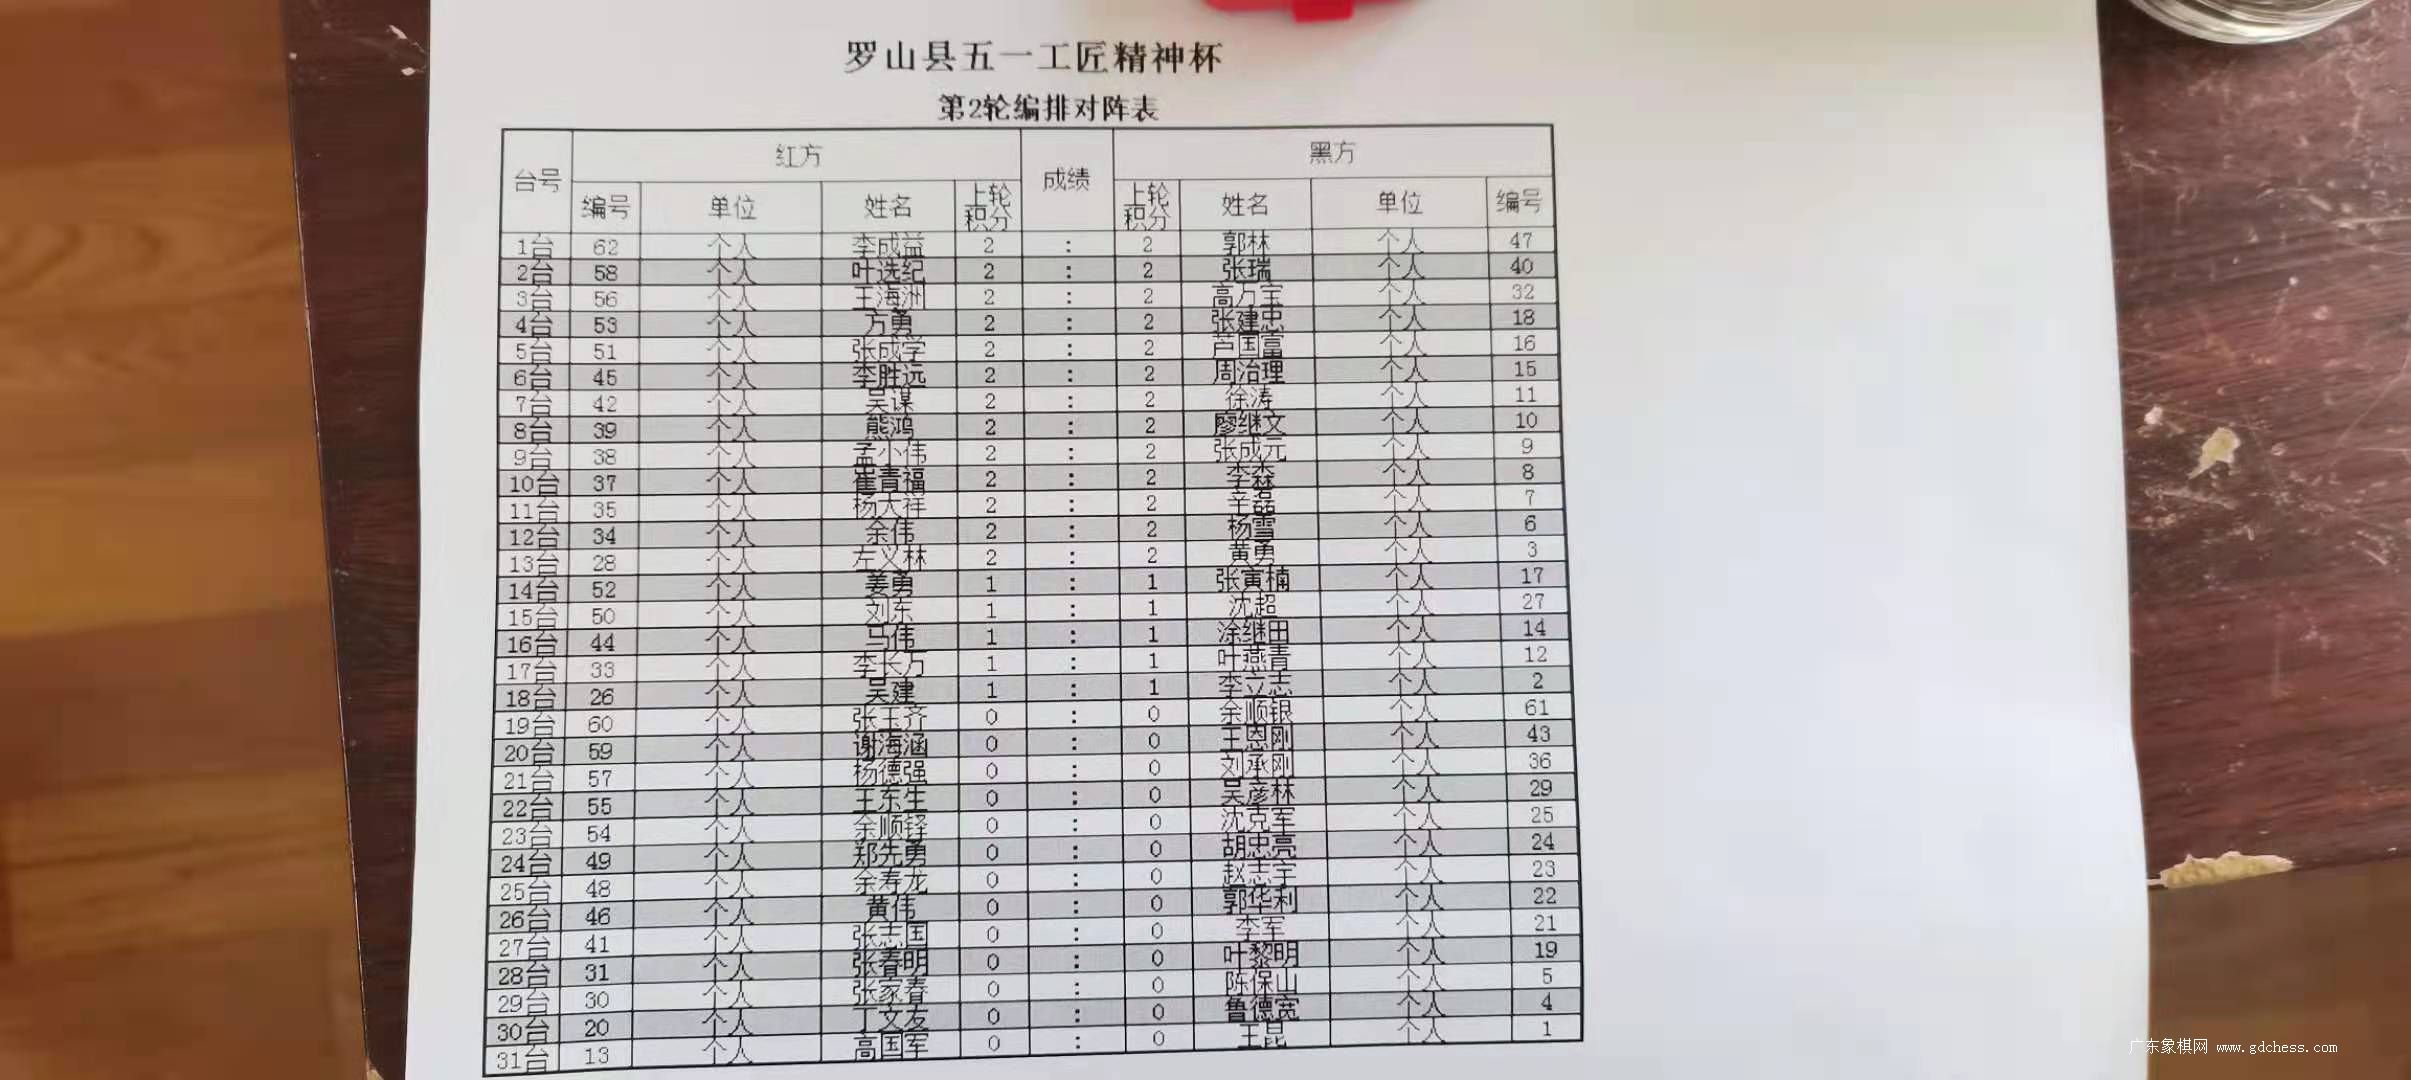 罗山县五一工匠精神杯
第2轮编排对阵表
台号 红方 成绩 黑方
编号 单位 姓名 上轮积分 上轮积分 姓名 单位 编号
1台 62 个人 李成益 2 : 2 郭林 个人 47
2台 58 个人 叶选纪 2 : 2 张瑞 个人 40
3台 56 个人 王海洲 2 : 2 高万宝 个人 32
4台 53 个人 方勇 2 : 2 张建忠 个人 18
5台 51 个人 张成学 2 : 2 芦国富 个人 16
6台 45 个人 李胜远 2 : 2 周治理 个人 15
7台 42 个人 吴谋 2 : 2 徐涛 个人 11
8台 39 个人 熊鸿 2 : 2 廖继文 个人 10
9台 38 个人 孟小伟 2 : 2 张成元 个人 9
10台 37 个人 崔青福 2 : 2 李森 个人 8
11台 35 个人 杨大祥 2 : 2 辛磊 个人 7
12台 34 个人 余伟 2 : 2 杨雪 个人 6
13台 28 个人 左义林 2 : 2 黄勇 个人 3
14台 52 个人 姜勇 1 : 1 张寅楠 个人 17
15台 50 个人 刘东 1 : 1 沈超 个人 27
16台 44 个人 马伟 1 : 1 涂继田 个人 14
17台 33 个人 李长万 1 : 1 叶燕青 个人 12
18台 26 个人 吴建 1 : 1 李立志 个人 2
19台 60 个人 张玉齐 0 : 0 余顺银 个人 61
20台 59 个人 谢海涵 0 : 0 王恩刚 个人 43
21台 57 个人 杨德强 0 : 0 刘承刚 个人 36
22台 55 个人 王东生 0 : 0 吴彦林 个人 29
23台 54 个人 余顺铎 0 : 0 沈克军 个人 25
24台 49 个人 郑先勇 0 : 0 胡忠亮 个人 24
25台 48 个人 余寿龙 0 : 0 赵志宇 个人 23
26台 46 个人 黄伟 0 : 0 郭华利 个人 22
27台 41 个人 张志国 0 : 0 李军 个人 21
28台 31 个人 张春明 0 : 0 叶黎明 个人 19
29台 30 个人 张家春 0 : 0 陈保山 个人 5
30台 20 个人 丁文友 0 : 0 鲁德宽 个人 4
31台 13 个人 高国军 0 : 0 王昆 个人 1
广东象棋网 www.gdchess.com